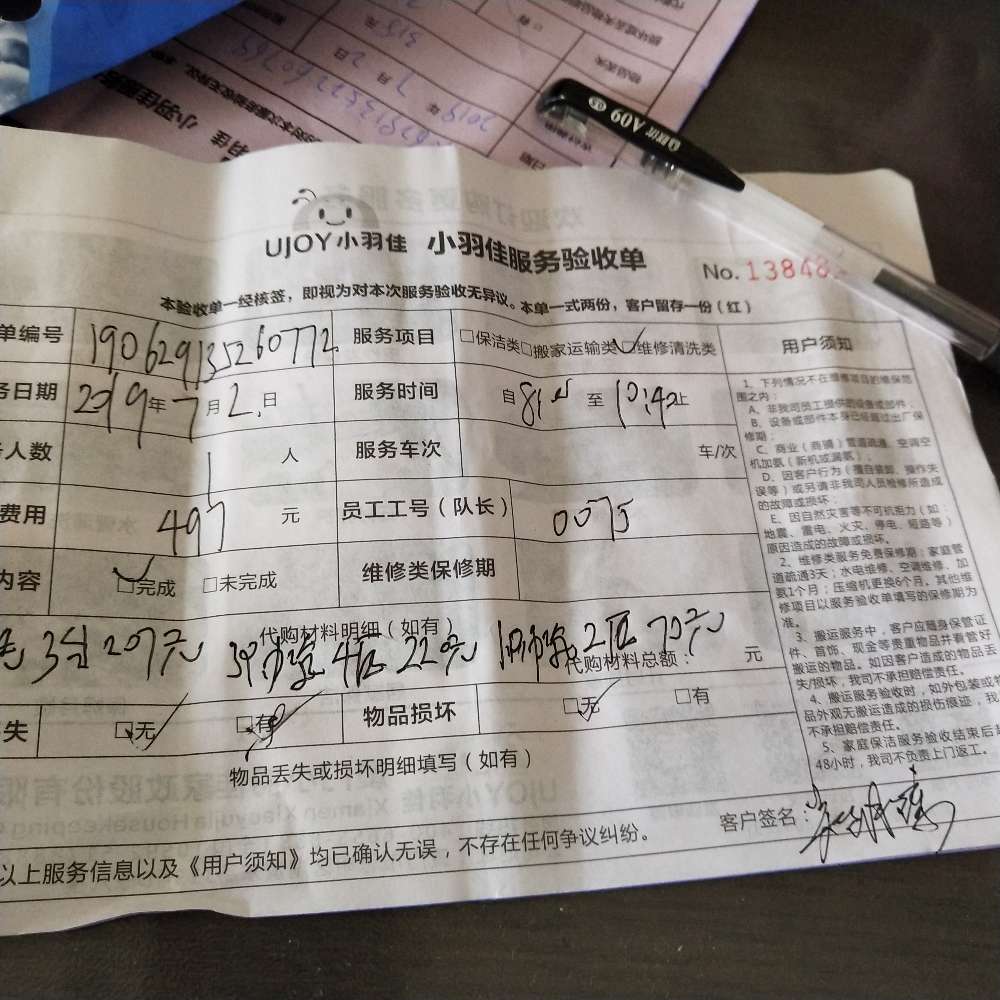 UJOY小羽佳 小羽佳服务验收单
No. 13848
本验收单一经核签，即视为对本次服务验收无异议。本单一式两份，客户留存一份（红）
单编号 190629135260772 服务项目 □保洁类□搬家运输类□维修清洗类 用户须知
务日期 2019年7月2日 服务时间 自 至 10:40止
人数 1 人 服务车次 车/次
费用 497 元 员工工号（队长） 0075
内容 □完成 □未完成 维修类保修期
代购材料明细（如有）
3台207元 4匹 220元 2匹 70元
代购材料总额： 元
失 □无 □有 物品损坏 □无 □有
物品丢失或损坏明细填写（如有）
以上服务信息以及《用户须知》均已确认无误，不存在任何争议纠纷。
客户签名：
1、下列情况不在维修项目的维保范
围之内：
A、非我司员工提供的设备或部件；
B、设备或部件本身已经超过出厂保
修期；
C、商业（商铺）管道疏通、空调空
机加氨（新机或漏氨）；
D、因客户行为（擅自装卸、操作失
误等）或另请非我司人员检修所造成
的故障或损坏；
E、因自然灾害等不可抗拒力（如：
地震、雷电、火灾、停电、短路等）
原因造成的故障或损坏。
2、维修类服务免费保修期：家庭管
道疏通3天；水电维修、空调维修、加
氨1个月；压缩机更换6个月，其他维
修项目以服务验收单填写的保修期为
准。
3、搬运服务中，客户应随身保管证
件、首饰、现金等贵重物品并看管好
搬运的物品。如因客户造成的物品丢
失/损坏，我司不承担赔偿责任。
4、搬运服务验收时，如外包装或物
品外观无搬运造成的损伤痕迹，我
不承担赔偿责任。
5、家庭保洁服务验收结束后超
48小时，我司不负责上门返工。
A09
0.5